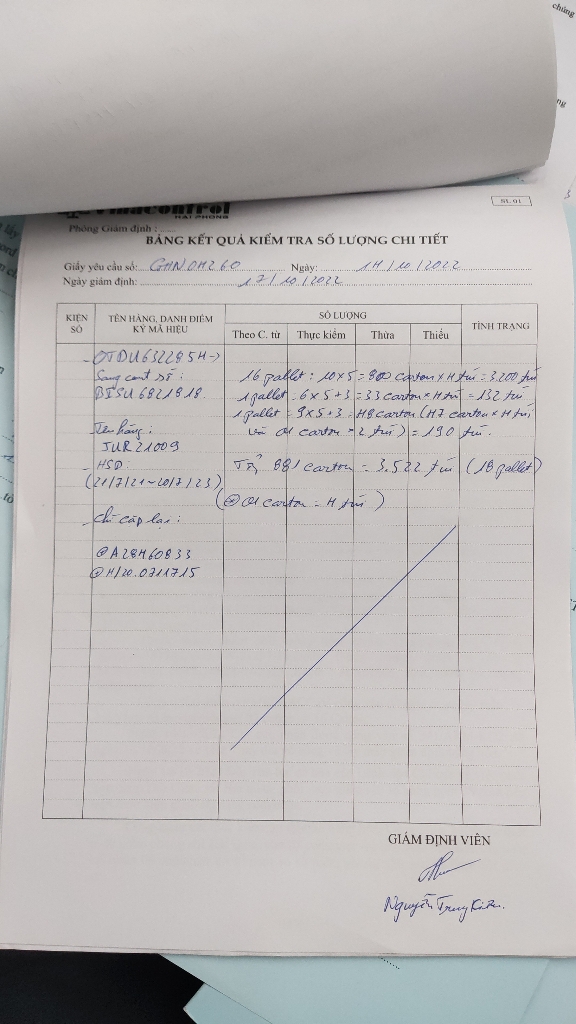 Vinacontrol
HAI PHONG
BL 01
Phòng Giám định :
BẢNG KẾT QUẢ KIỂM TRA SỐ LƯỢNG CHI TIẾT
Giấy yêu cầu số: Ngày: 14/10/2022
Ngày giám định: 17/10/2022
KIỆN SỐ
TÊN HÀNG, DANH ĐIỂM KÝ MÃ HIỆU
SỐ LƯỢNG
TÌNH TRẠNG
Theo C. từ Thực kiểm Thừa Thiếu
- OTDU6322854 →
Sang cont số: 16 pallet: 10x5 = 800 carton x 4 túi = 3.200 túi
BISU 6821818. 1 pallet = 6x5+3 = 33 carton x 4 túi = 132 túi
1 pallet = 9x5+3 = 48 carton (47 carton x 4 túi
- Tên hàng: và 01 carton = 2 túi) = 190 túi.
JUR21009
- HSD: 881 carton = 3.522 túi (18 pallet)
(21/7/21~20/7/23)
(@ 01 carton = 4 túi)
- Chì cặp lại:
@A28460833
@H/20.0711715
GIÁM ĐỊNH VIÊN
Nguyễn Trung Kiên